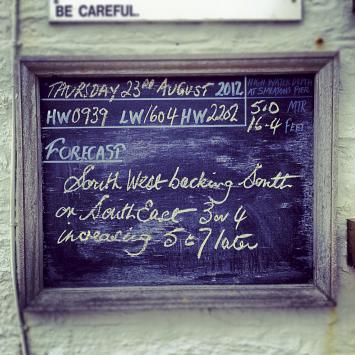 BE CAREFUL.
THURSDAY 23RD AUGUST 2012
HIGH WATER DEPTH
AT SMEATONS PIER
HW0939 LW1604 HW2202
5.0 MTR
16.4 FEET
FORECAST
South West backing South
or South East 3 or 4
increasing 5 to 7 later